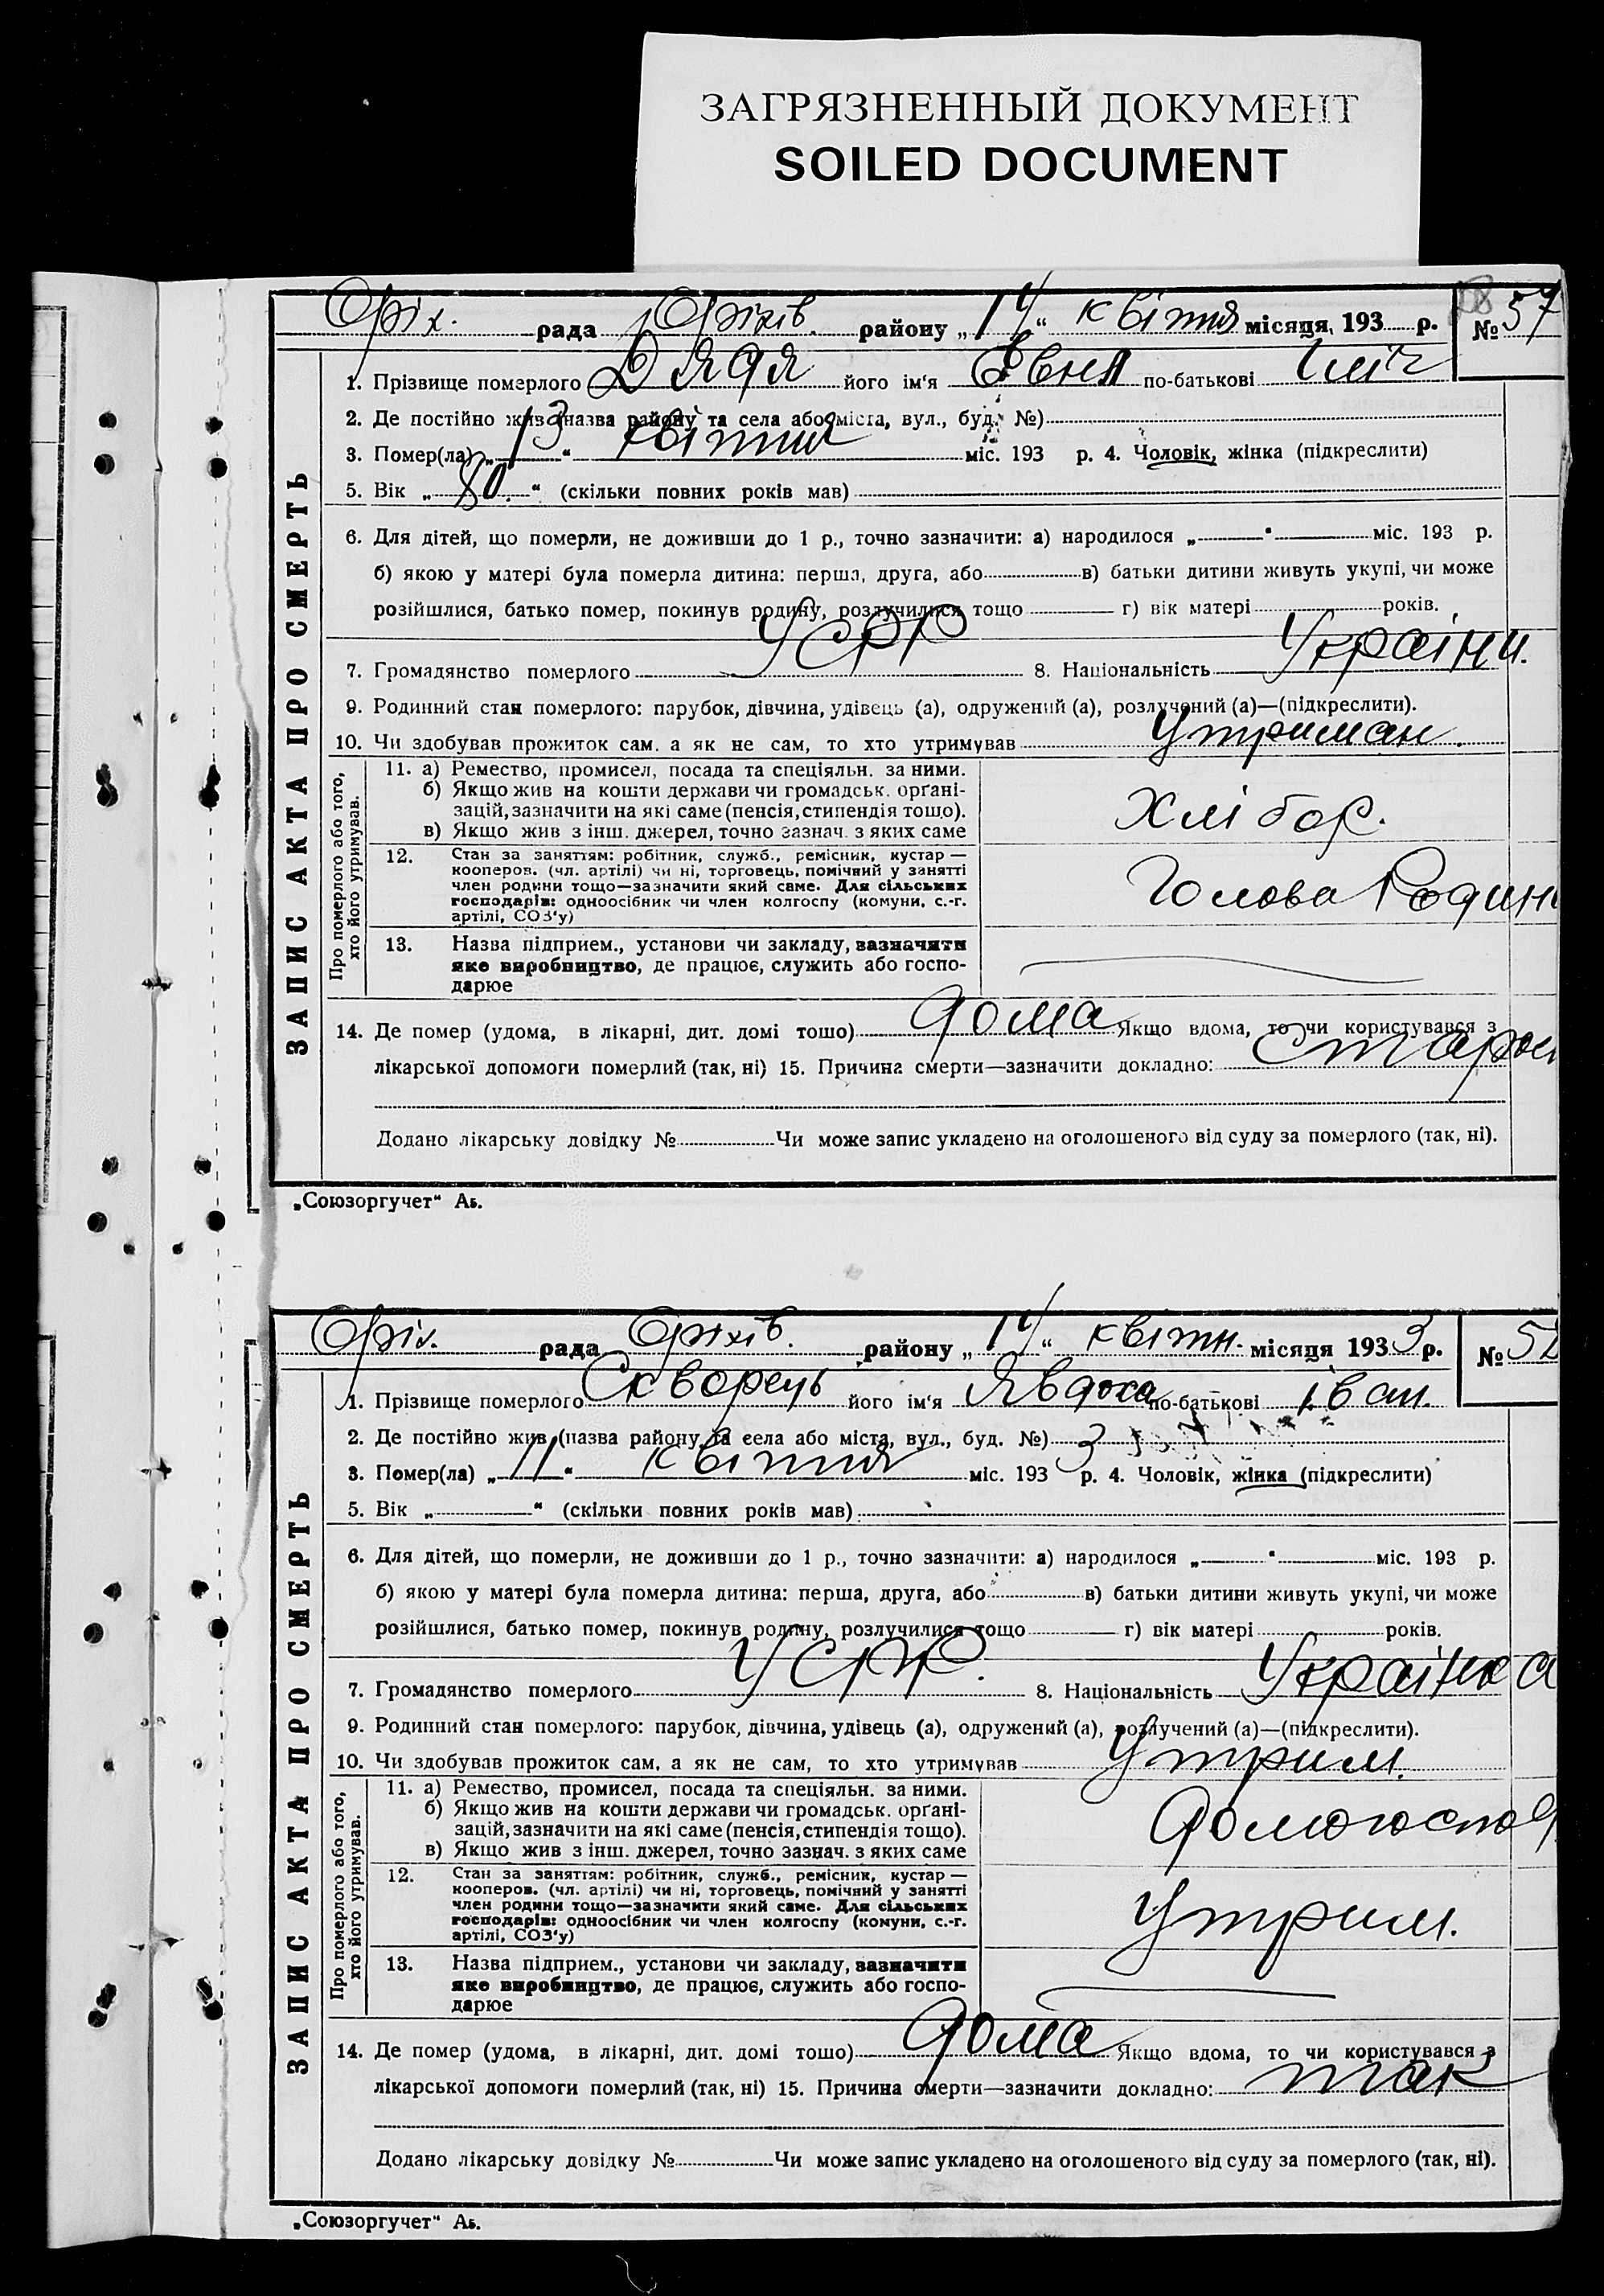 ЗАГРЯЗНЕННЫЙ ДОКУМЕНТ
SOILED DOCUMENT
Оріх. рада Оріхів. району „14“ квітня місяця, 193 р. № 57
ЗАПИС АКТА ПРО СМЕРТЬ
1. Прізвище померлого Дядя його ім'я по-батькові
2. Де постійно жив (назва району та села або міста, вул., буд. №)
3. Помер(ла) „13“ квітня міс. 193 р. 4. Чоловік, жінка (підкреслити)
5. Вік „80.“ (скільки повних років мав)
6. Для дітей, що померли, не доживши до 1 р., точно зазначити: а) народилося „ “ міс. 193 р.
б) якою у матері була померла дитина: перша, друга, або в) батьки дитини живуть укупі, чи може
розійшлися, батько помер, покинув родину, розлучилися тощо г) вік матері років.
7. Громадянство померлого УСРР 8. Національність Україин.
9. Родинний стан померлого: парубок, дівчина, удівець (а), одружений (а), розлучений (а)—(підкреслити).
10. Чи здобував прожиток сам. а як не сам, то хто утримував Утриман.
Про померлого або того, хто його утримував.
11. а) Ремество, промисел, посада та спеціяльн. за ними.
б) Якщо жив на кошти держави чи громадськ. орґані-
зацій, зазначити на які саме (пенсія, стипендія тощо).
в) Якщо жив з інш. джерел, точно зазнач. з яких саме
Хлібор.
12. Стан за заняттям: робітник, служб., ремісник, кустар —
кооперов. (чл. артілі) чи ні, торговець, помічний у занятті
член родини тощо—зазначити який саме. Для сільських
господарів: одноосібник чи член колгоспу (комуни, с.-г.
артілі, СОЗ'у)
Голова Родини
13. Назва підприєм., установи чи закладу, зазначити
яке виробництво, де працює, служить або госпо-
дарює
14. Де помер (удома, в лікарні, дит. домі тощо) дома Якщо вдома, то чи користувався з
лікарської допомоги померлий (так, ні) 15. Причина смерти—зазначити докладно: Старост
Додано лікарську довідку № Чи може запис укладено на оголошеного від суду за померлого (так, ні).
„Союзоргучет“ Аб.
Оріх. рада Оріхів. району „14“ квітн. місяця 1933 р. № 58
ЗАПИС АКТА ПРО СМЕРТЬ
1. Прізвище померлого Скворець його ім'я Явдоха по-батькові Іван.
2. Де постійно жив (назва району та села або міста, вул., буд. №)
3. Помер(ла) „11“ квітня міс. 1933 р. 4. Чоловік, жінка (підкреслити)
5. Вік „ “ (скільки повних років мав)
6. Для дітей, що померли, не доживши до 1 р., точно зазначити: а) народилося „ “ міс. 193 р.
б) якою у матері була померла дитина: перша, друга, або в) батьки дитини живуть укупі, чи може
розійшлися, батько помер, покинув родину, розлучилися тощо г) вік матері років.
7. Громадянство померлого УСРР. 8. Національність Українка
9. Родинний стан померлого: парубок, дівчина, удівець (а), одружений (а), розлучений (а)—(підкреслити).
10. Чи здобував прожиток сам, а як не сам, то хто утримував Утрим.
Про померлого або того, хто його утримував.
11. а) Ремество, промисел, посада та спеціяльн. за ними.
б) Якщо жив на кошти держави чи громадськ. орґані-
зацій, зазначити на які саме (пенсія, стипендія тощо).
в) Якщо жив з інш. джерел, точно зазнач. з яких саме
Домогоспод
12. Стан за заняттям: робітник, служб., ремісник, кустар —
кооперов. (чл. артілі) чи ні, торговець, помічний у занятті
член родини тощо—зазначити який саме. Для сільських
господарів: одноосібник чи член колгоспу (комуни, с.-г.
артілі, СОЗ'у)
Утрим.
13. Назва підприєм., установи чи закладу, зазначити
яке виробництво, де працює, служить або госпо-
дарює
14. Де помер (удома, в лікарні, дит. домі тощо) дома Якщо вдома, то чи користувався з
лікарської допомоги померлий (так, ні) 15. Причина смерти—зазначити докладно: так
Додано лікарську довідку № Чи може запис укладено на оголошеного від суду за померлого (так, ні).
„Союзоргучет“ Аб.